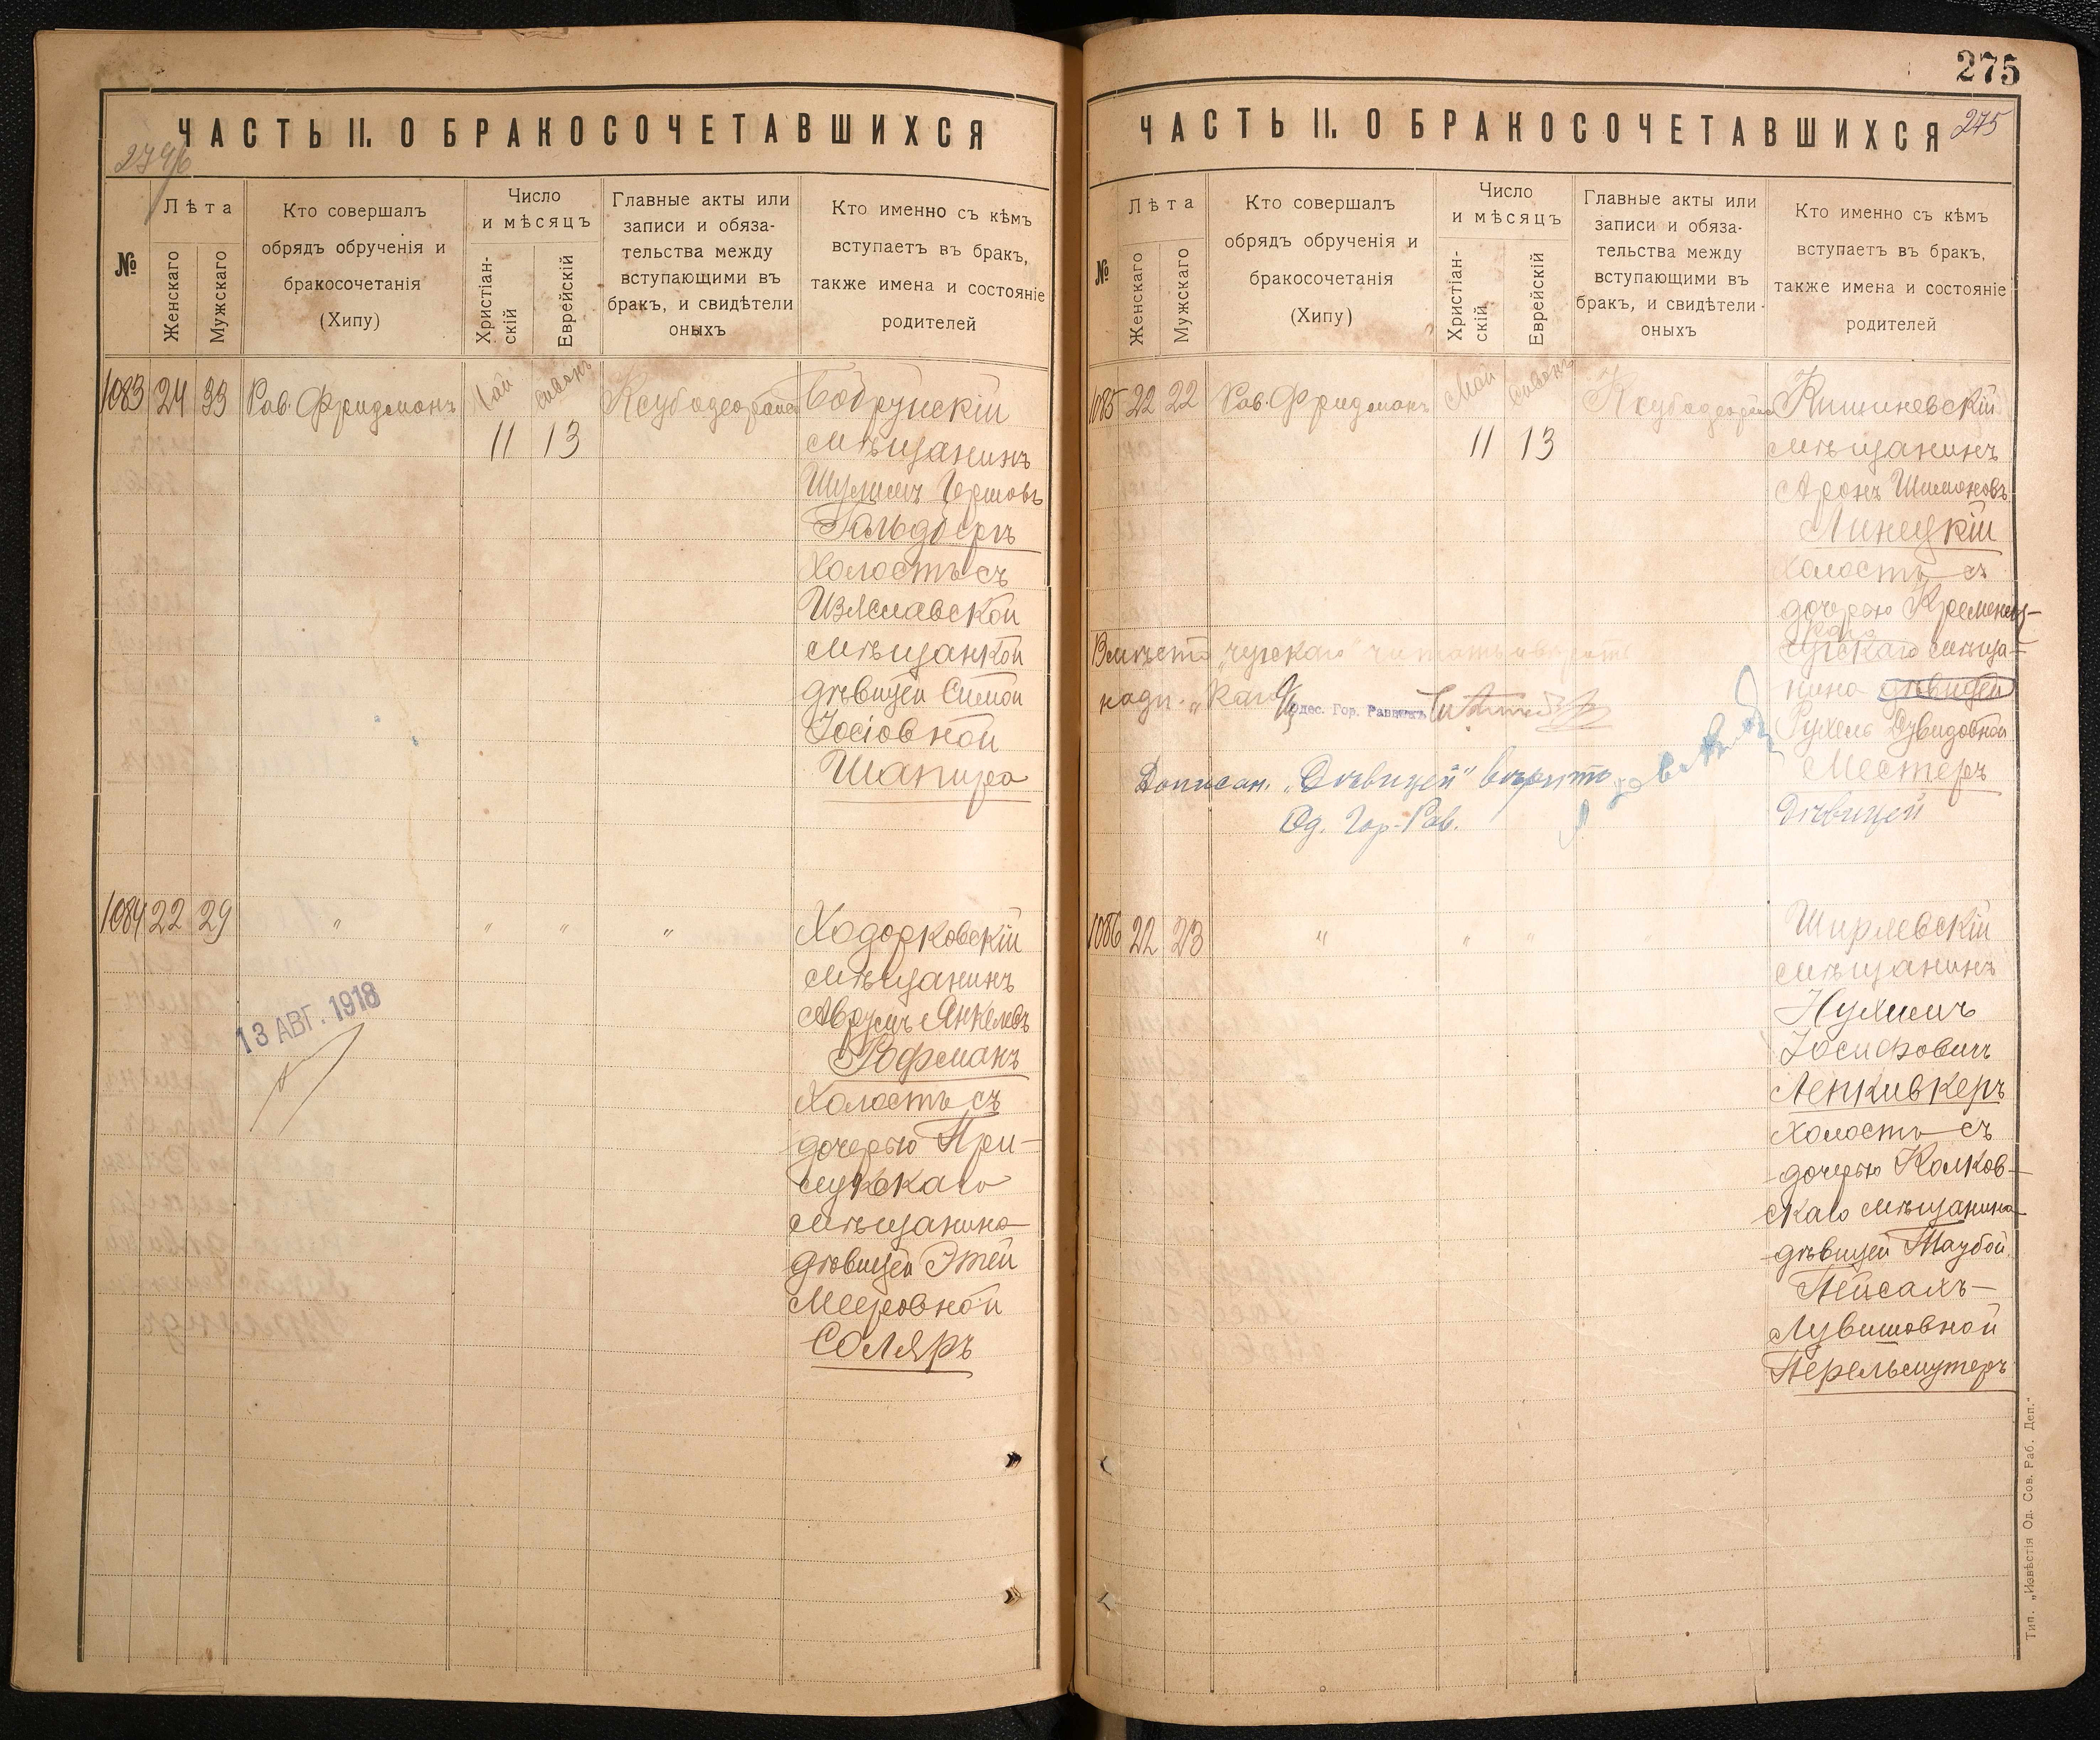 ЧАСТЬ II. О БРАКОСОЧЕТАВШИХСЯ
274/б
№
Лѣта
Женскаго
Мужскаго
Кто совершалъ
обрядъ обрученія и
бракосочетанія
(Хипу)
Число
и мѣсяцъ
Христіан-
скій
Еврейскій
Главные акты или
записи и обяза-
тельства между
вступающими въ
бракъ, и свидѣтели
оныхъ
Кто именно съ кѣмъ
вступаетъ въ бракъ,
также имена и состояніе
родителей
1083 24 33 Рав. Фридманъ Май Сиванъ
11 13
Бобруйскій
мѣщанинъ
Шулимъ Гершовъ
Гольдбергъ
холостъ съ
Изяславской
мѣщанкой
дѣвицей Симой
Іосіовной
Шапиро
1084 22 29 " " " "
Ходорковскій
мѣщанинъ
Аврумъ Янкелевъ
Рофманъ
холостъ съ
дочерью При-
лукскаго
мѣщанина
дѣвицей Этей
Мееровной
Соляръ
13 АВГ. 1918
275
ЧАСТЬ II. О БРАКОСОЧЕТАВШИХСЯ
275
№
Лѣта
Женскаго
Мужскаго
Кто совершалъ
обрядъ обрученія и
бракосочетанія
(Хипу)
Число
и мѣсяцъ
Христіан-
скій
Еврейскій
Главные акты или
записи и обяза-
тельства между
вступающими въ
бракъ, и свидѣтели
оныхъ
Кто именно съ кѣмъ
вступаетъ въ бракъ,
также имена и состояніе
родителей
1085 22 22 Рав. Фридманъ Май Сиванъ
11 13
Кишиневскій
мѣщанинъ
Аронъ Шимоновъ
Линецкій
холостъ съ
дочерью Кременец-
каго
мѣща-
нина дѣвицей
Рухель Дувидовной
Местеръ
Дѣвицей
Вмѣсто
надп. „каго"
Одес. Гор. Раввинъ
Дописан. „Дѣвицей" вѣрить
Од. Гор. Рав.
1086 22 23 " " "
Ширяевскій
мѣщанинъ
Нухимъ
Іосифовичъ
Лепкивкеръ
холостъ съ
дочерью Колков-
скаго мѣщанина
дѣвицей Таубой
Пейсахъ-
Лувишовной
Перельмутеръ
Тип. „Извѣстія Од. Сов. Раб. Деп."